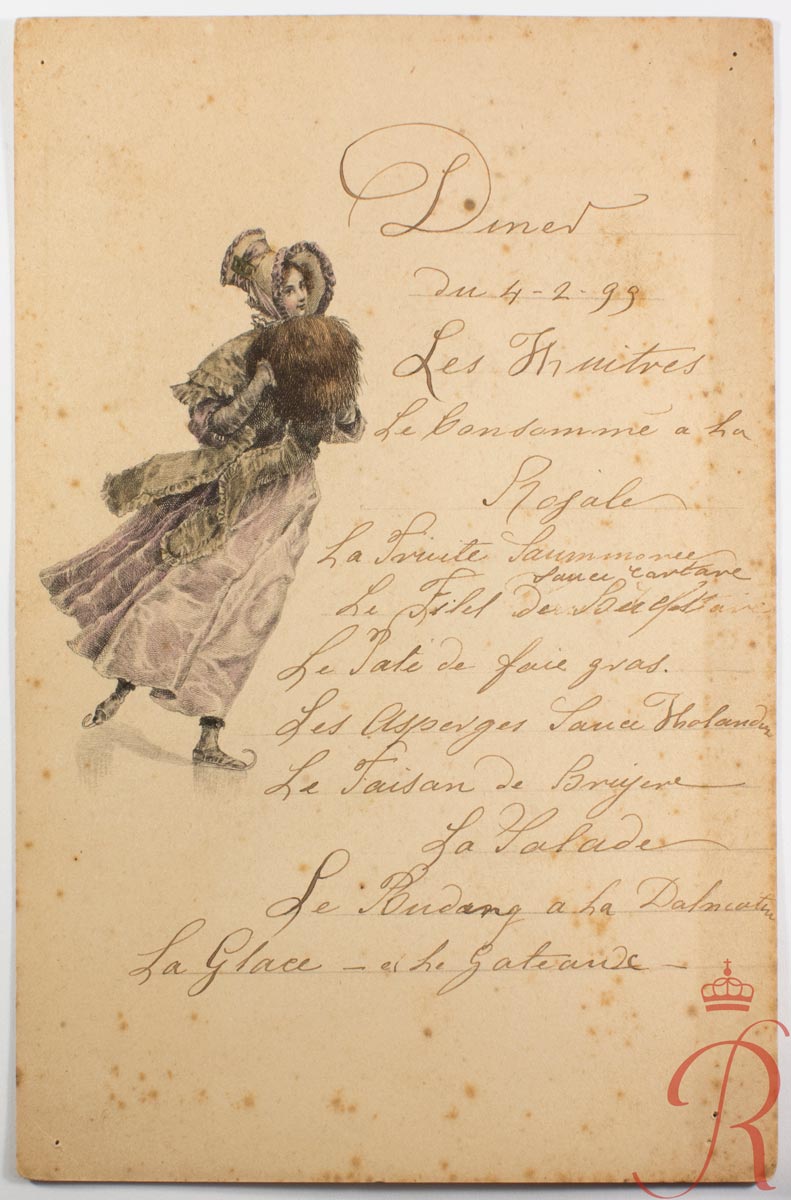 Diner
du 4-2-99
Les Huitres
Le Consommé a La
Rojale
La Truite Saummonée
Sauce tartare
Le Filet de
Le Paté de foie gras.
Les Asperges Sauce Holandse
Le Faisan de Brujere
La Salade
Le Pudang a La Dalmatie
La Glace - et Le Gateaude -
R